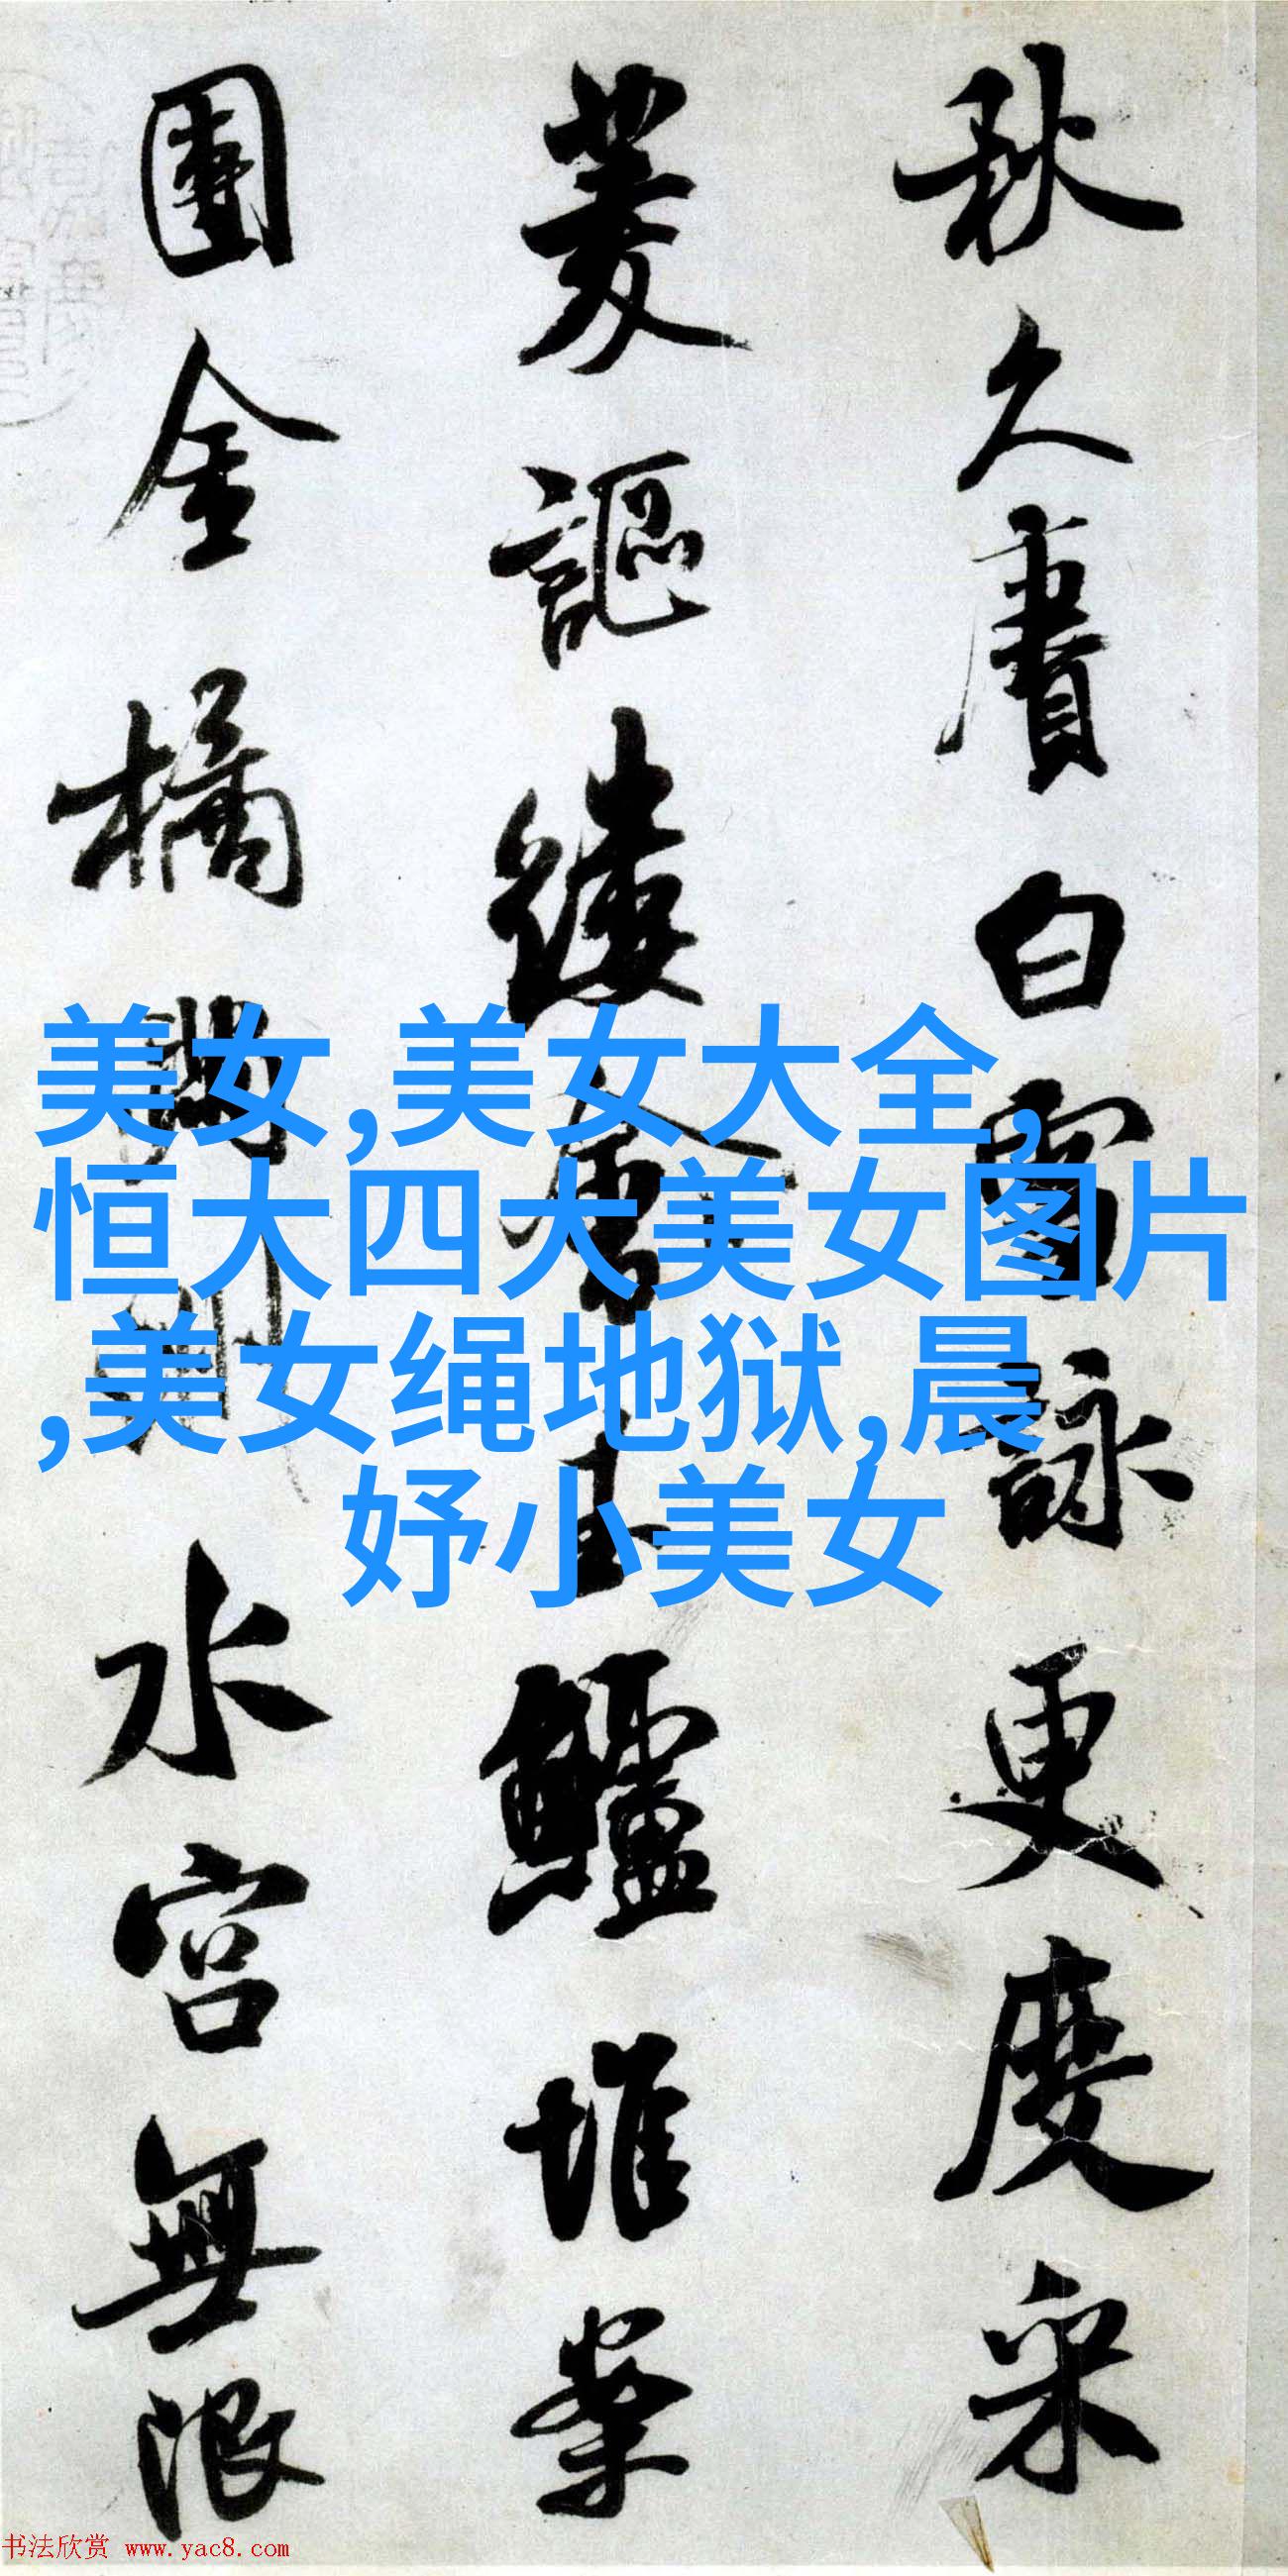 秋久賡白雪詠更度采
菱謳縷會玉鱸堆案
團金橘滿洲水宮無限
美女,美女大全,
恒大四大美女图片
,美女绳地狱,晨
妤小美女
书法欣赏 www.yac8.com